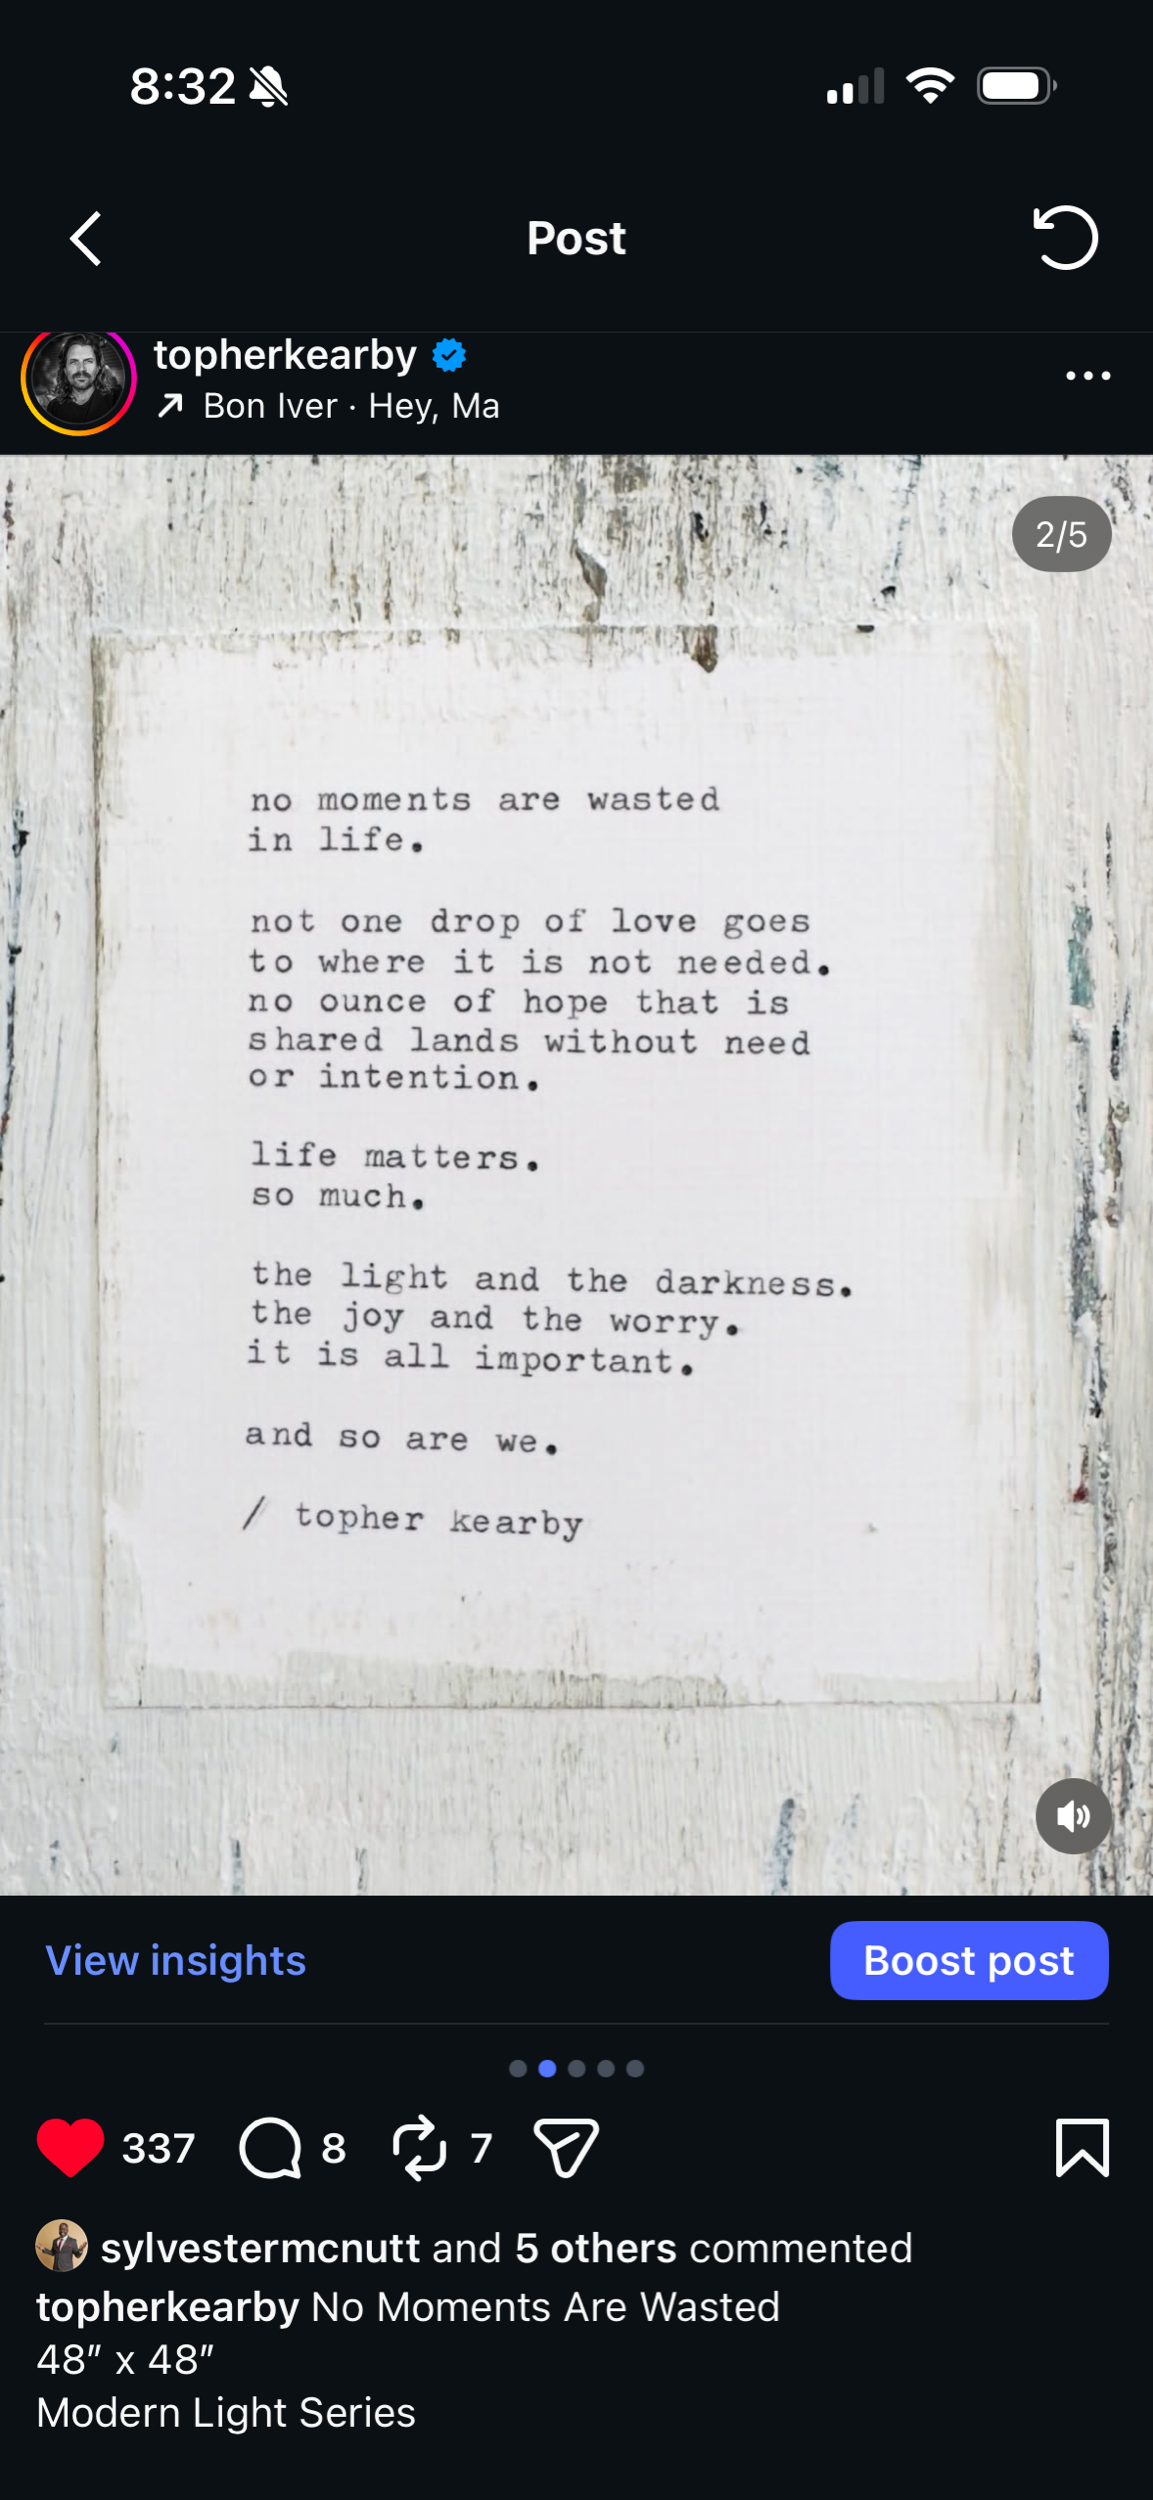 8:32
Post
topherkearby
Bon Iver · Hey, Ma
2/5
no moments are wasted
in life.
not one drop of love goes
to where it is not needed.
no ounce of hope that is
shared lands without need
or intention.
life matters.
so much.
the light and the darkness.
the joy and the worry.
it is all important.
and so are we.
/ topher kearby
View insights
Boost post
337
8
7
sylvestermcnutt and 5 others commented
topherkearby No Moments Are Wasted
48” x 48”
Modern Light Series